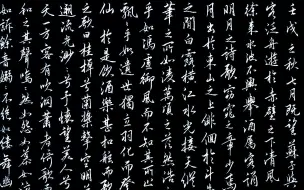 壬戌之秋七月既望蘇
客泛舟遊於赤壁之下清風
徐來水波不興舉酒屬客誦
明月之詩歌窈窕之章少焉
月出於東山之上徘徊於斗
之間白露橫江水光接天
葦之所如凌萬頃之茫然浩
乎如馮虛御風而不知其所止
飄乎如遺世獨立羽化而登
仙於是飲酒樂甚扣舷而
之歌曰桂棹兮蘭槳擊空明
遡流光渺兮予懷望美人兮
天一方客有吹洞簫者倚歌
和之其聲嗚嗚然如怨如慕如
如訴餘音嫋嫋不絕如縷舞幽